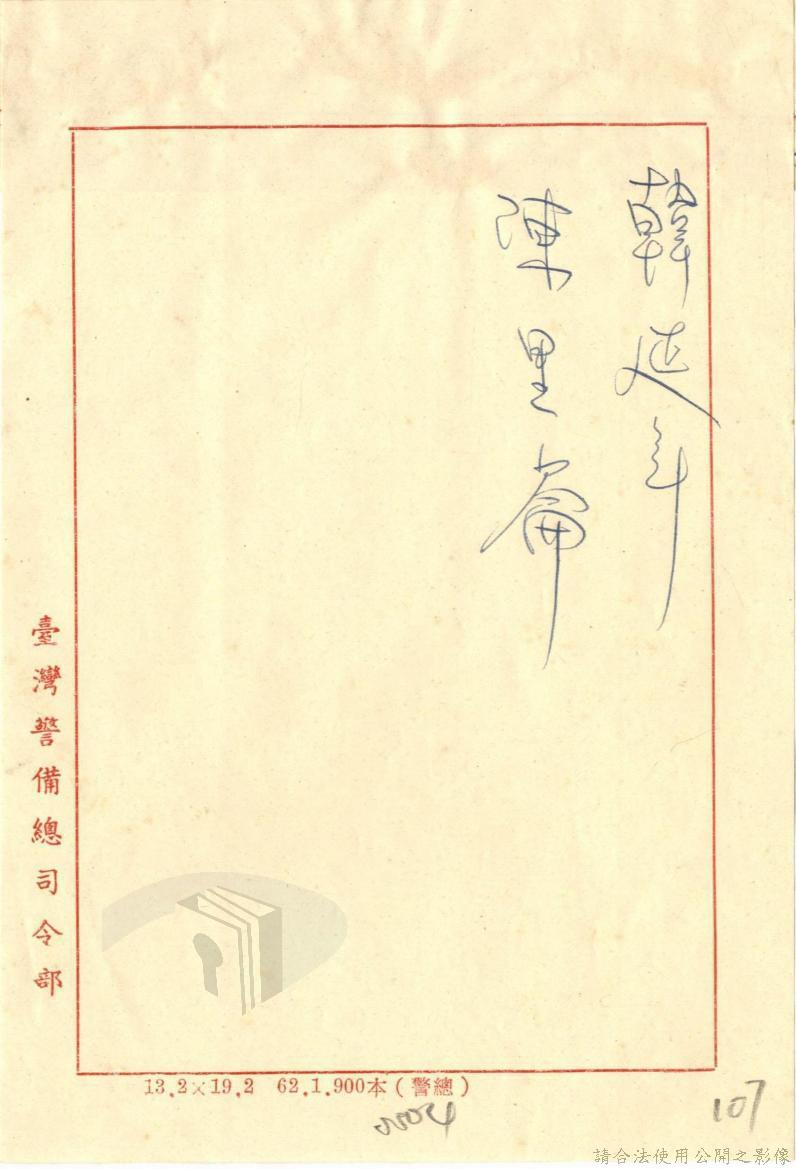 韓延年
陳里侖
臺灣警備總司令部
13.2×19.2 62.1.900本(警總)
107
請合法使用公開之影像